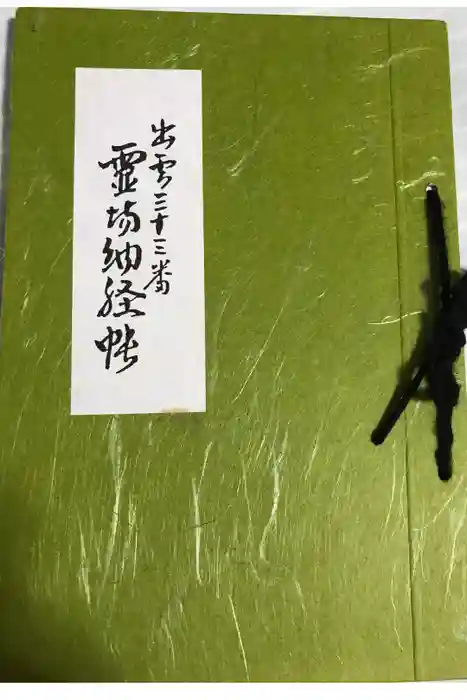 出雲三十三番
霊場納経帳